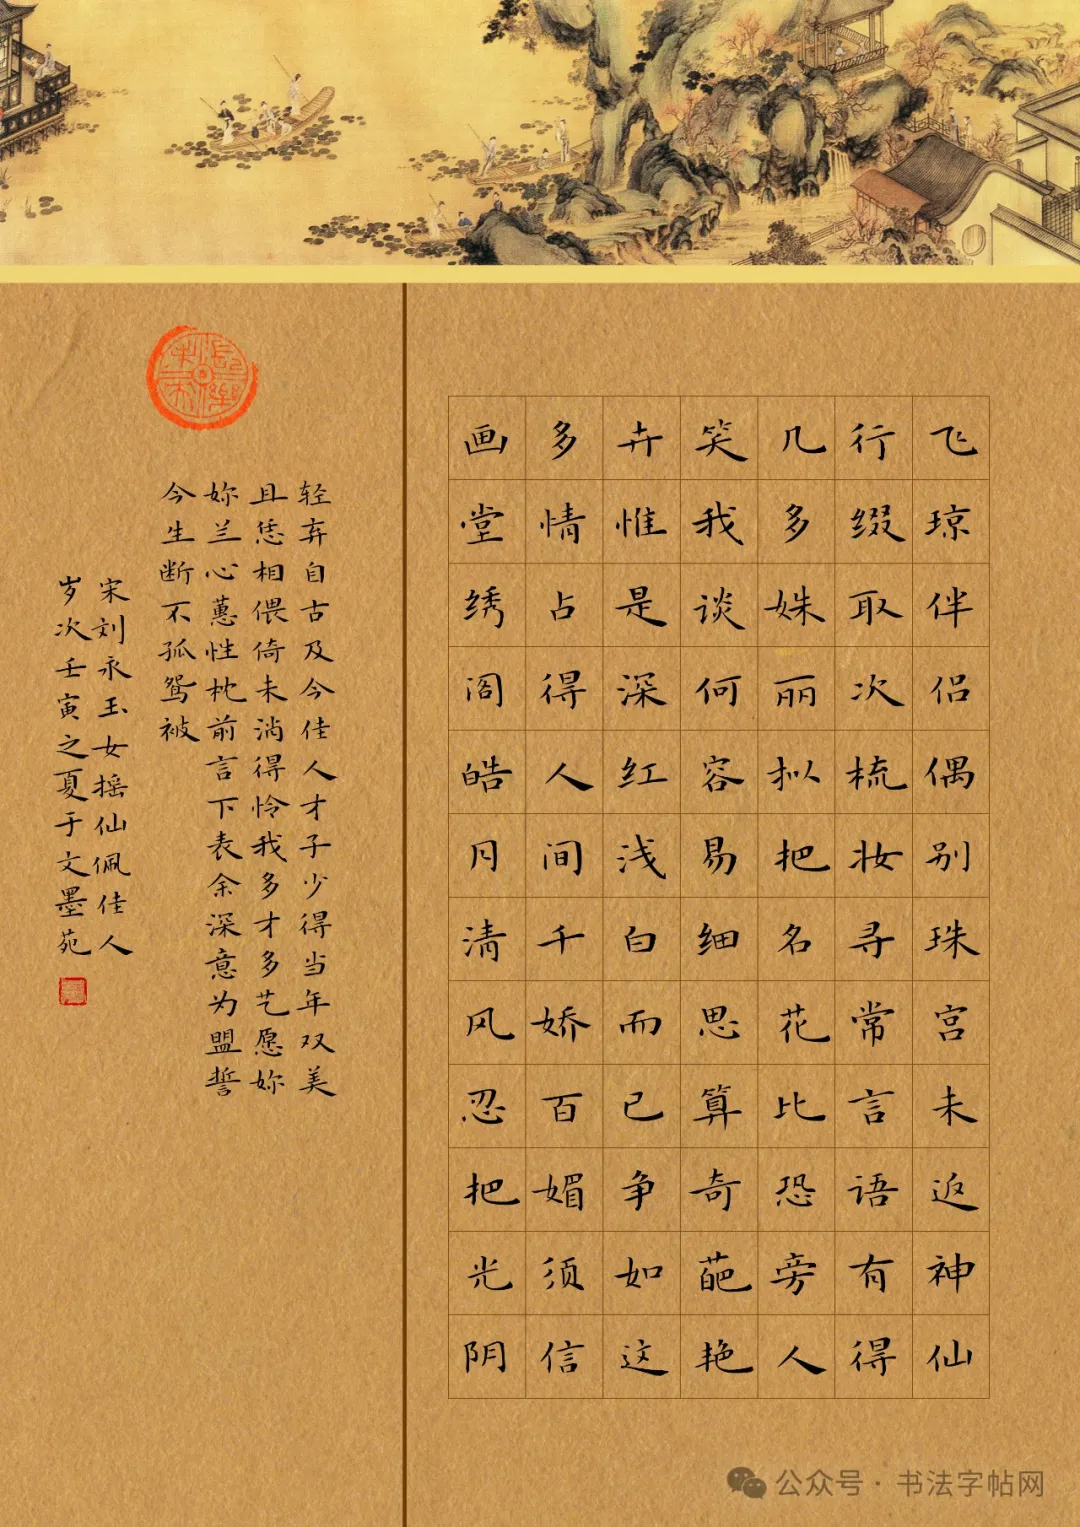 飞琼伴侣偶别珠宫未返神仙
行缀取次梳妆寻常言语有得
几多姝丽拟把名花比恐旁人
笑我谈何容易细思算奇葩艳
卉惟是深红浅白而已争如这
多情占得人间千娇百媚须信
画堂绣阁皓月清风忍把光阴
轻弃自古及今佳人才子少得当年双美
且恁相偎倚未消得怜我多才多艺愿妳
妳兰心蕙性枕前言下表余深意为盟誓
今生断不孤鸳被
宋刘永玉女摇仙佩佳人
岁次壬寅之夏于文墨苑
公众号·书法字帖网